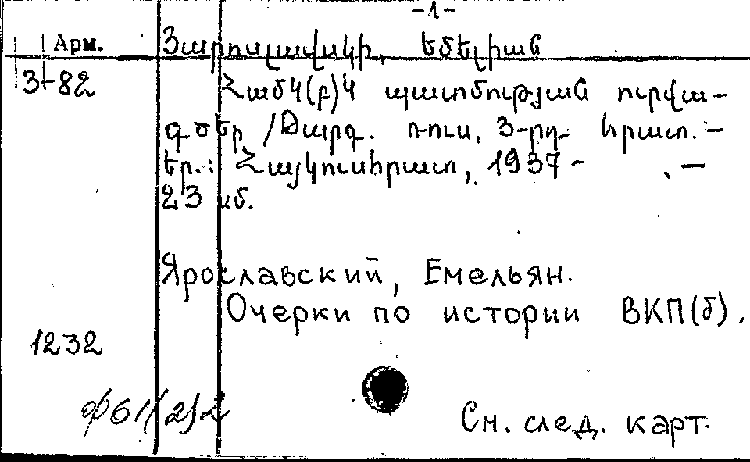 -1-
Арм. Յարոսլավսկի, Եմելիան
3-82 ՀամԿ(բ)Կ պատմության ուրվա-
գծեր /Թարգ. ռուս, 3-րդ հրատ. -
Եր.: Հայկուսհրատ, 1937 - . -
23 սմ.
Ярославский, Емельян.
Очерки по истории ВКП(б).
1232
ф61(2)2
См. след. карт.